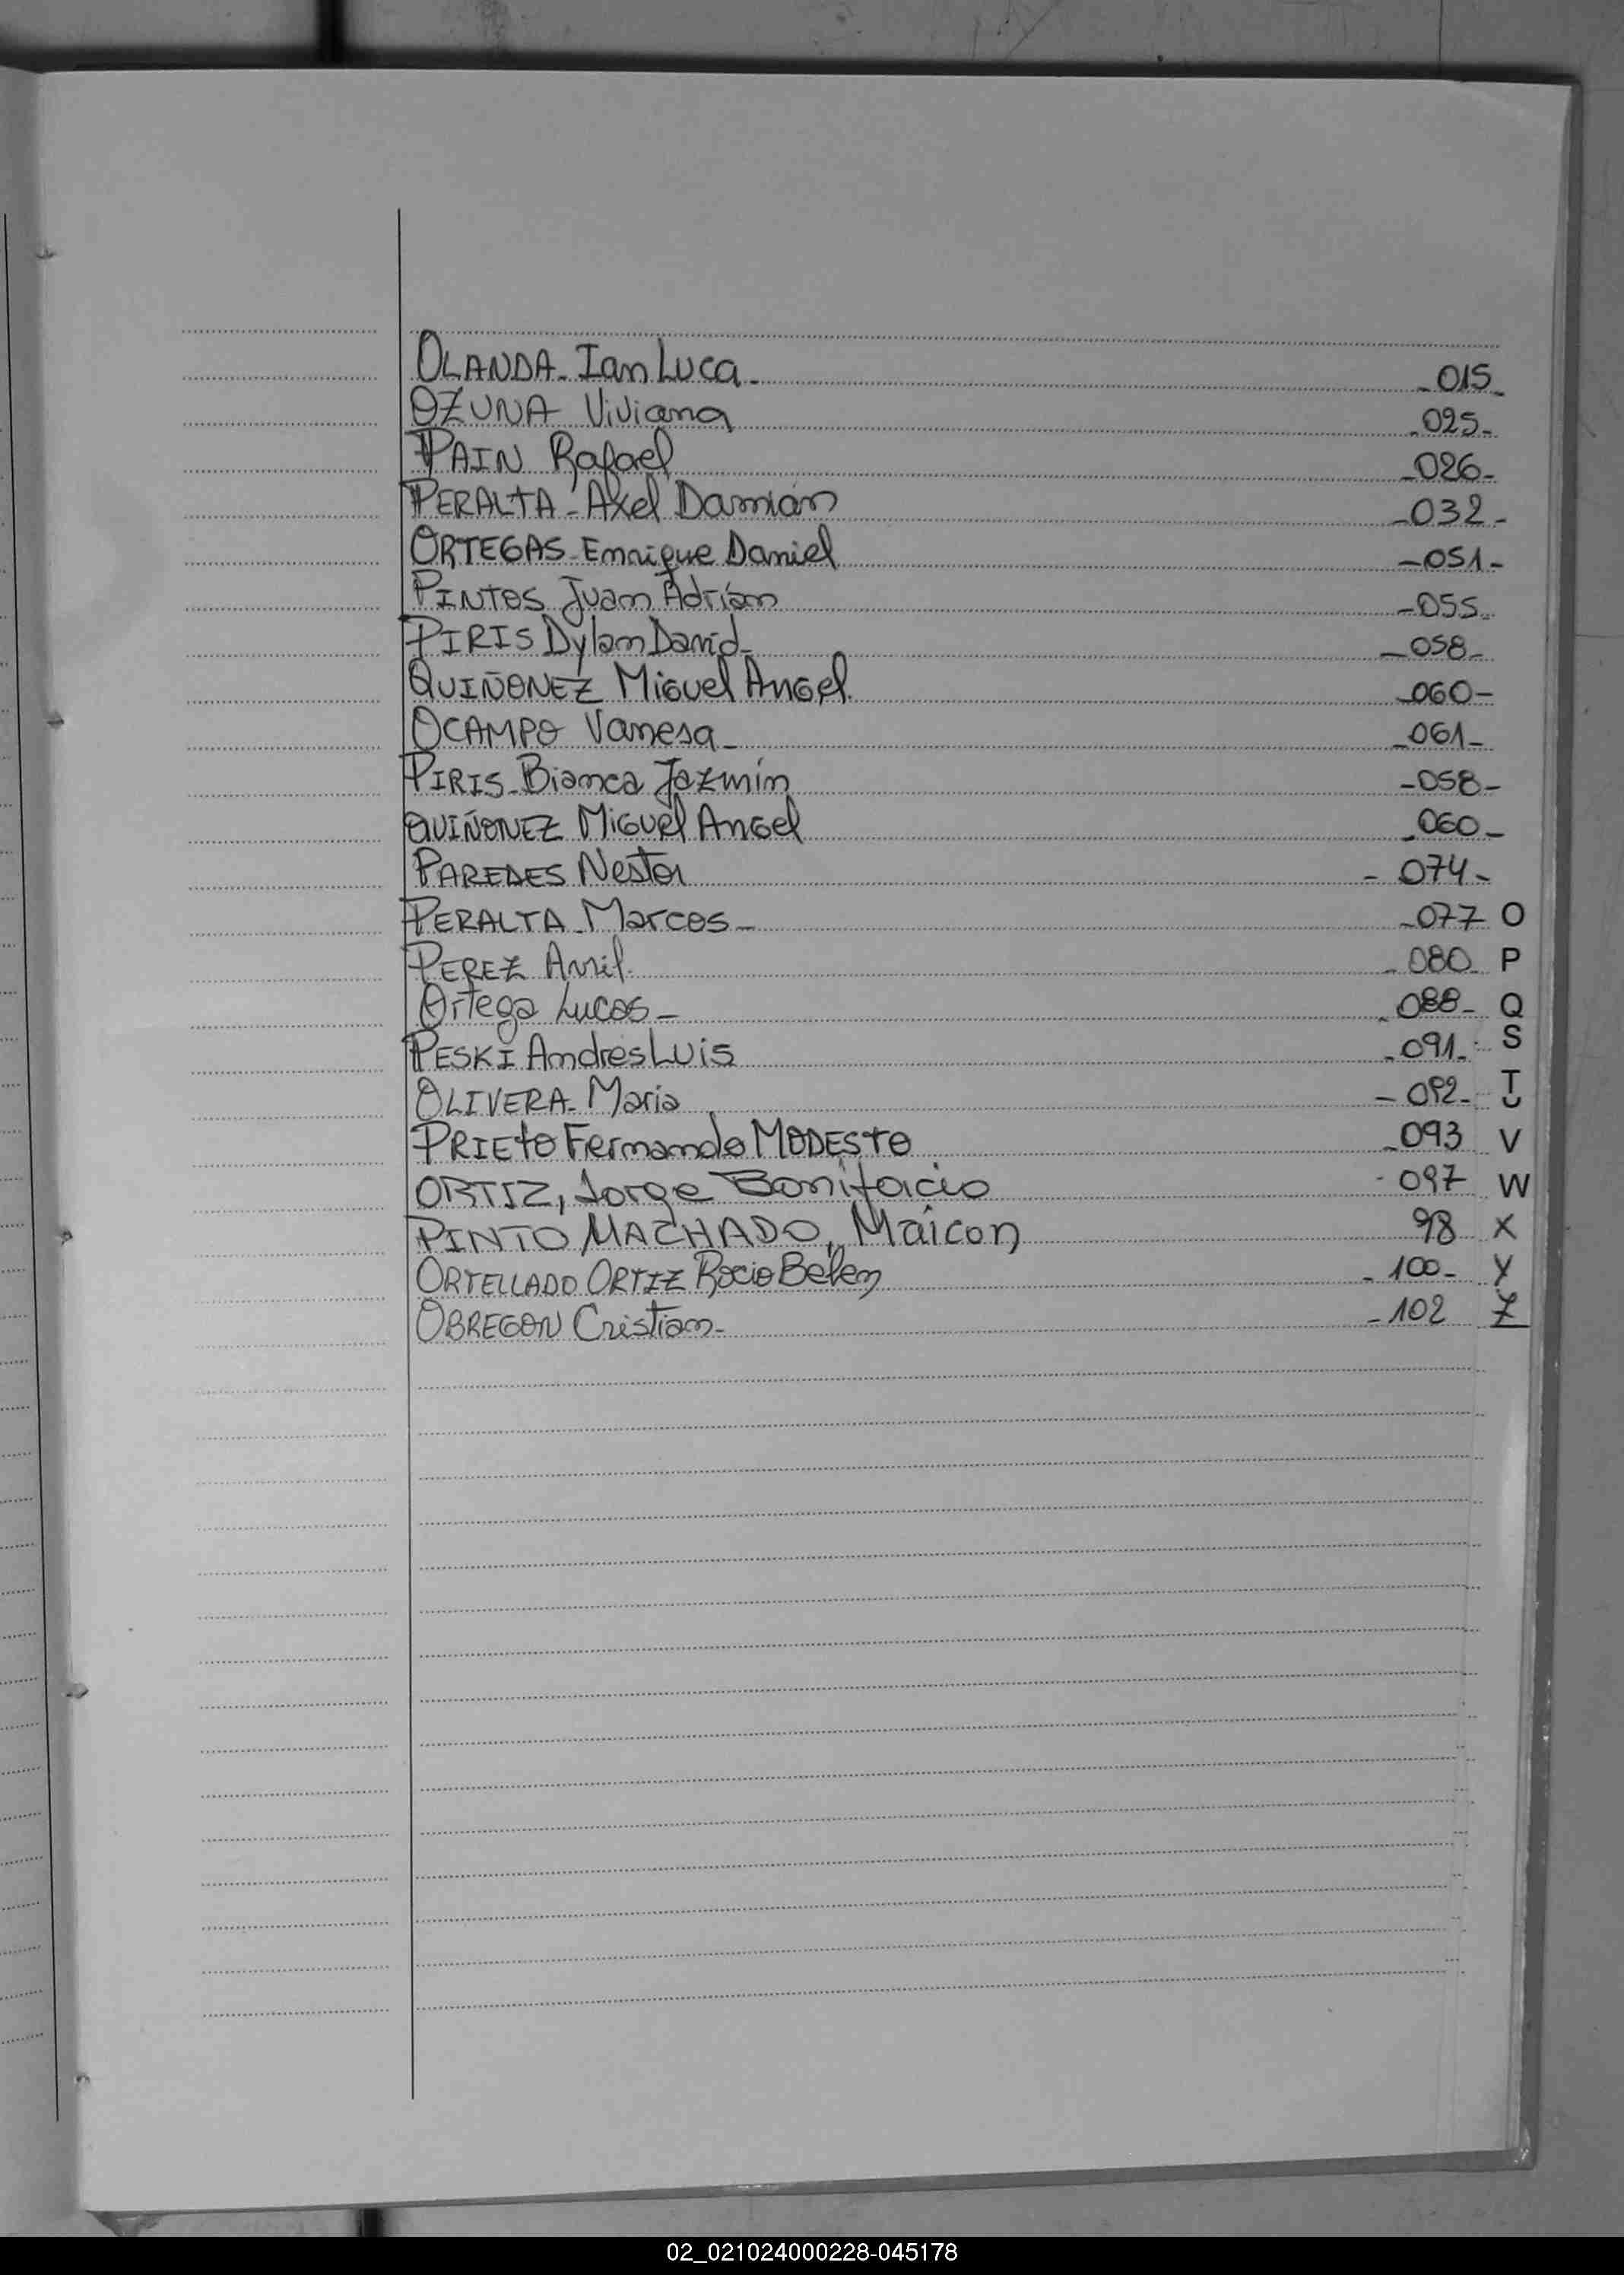 OLANDA - Ian Luca - - 015 -
OZUNA Viviana - 025 -
PAIN Rafael - 026 -
PERALTA - Axel Damián - 032 -
ORTEGAS - Enrique Daniel - 051 -
PINTOS Juan Adrián - 055 -
PIRIS Dylan David - - 058 -
QUIÑONEZ MiGuel AnGel - 060 -
OCAMPO Vanesa - - 061 -
PIRIS - Bianca Jazmín - 058 -
QUIÑONEZ MiGuel AnGel - 060 -
PAREDES Nestor - 074 -
PERALTA - Marcos - - 077 O
PEREZ Avril - 080 - P
Ortega Lucas - - 088 - Q
PESKI Andres Luis - 091 - S
OLIVERA - Maria - 092 - T U
PRIEtO Fernando MODESTO - 093 V
ORTIZ, Jorge Bonifacio - 097 W
PINTO MACHADO, Maicon 98 X
ORTELLADO ORTIZ Rocio Belen - 100 - Y
OBREGON Cristian - - 102 Z
02_021024000228-045178